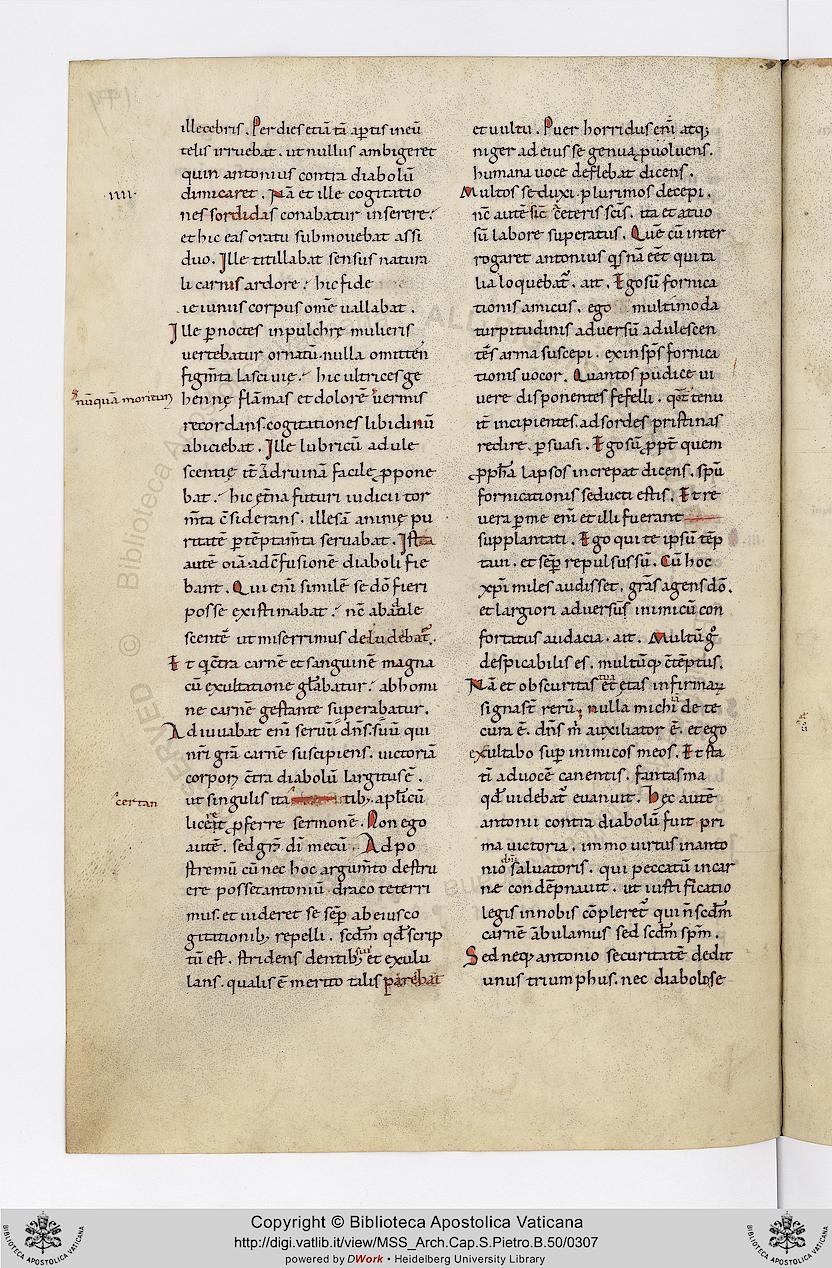 illecebris. Per dies etiā tā aptis ineū
telis irruebat. ut nullus ambigeret
quin antonius contra diabolū
·IIII·
dimicaret. Nā et ille cogitatio
nes sordidas conabatur inserere.
et hic eas oratu submouebat assi
duo. Ille titillabat sensus natura
li carnis ardore. hic fide
ieiuniis corpus om̄e uallabat.
Ille p noctes in pulchrę mulieris
uertebatur ornatū. nulla omittēn
figm̄ta lasciuię. hic ultrices ge
nūquā morituri
hennę flāmas et dolorē uermis
recordans. cogitationes libidinū
abiciebat. Ille lubricū adule
scentię it̄ ad ruinā facile ꝓpone
bat. hic et̄na futuri iudicii tor
m̄ta c̄siderans. illesā animę pu
ritatē p tēptam̄ta seruabat. Ista
autē oīa ad c̄fusionē diaboli fie
bant. Qui eni similē se dō fieri
posse existimabat. nc̄ ab adule
scentē ut miserrimus deludebat̄.
Et q c̄tra carnē et sanguinē magna
cū exultatione gl̄abatur. ab homi
ne carnē gestante superabatur.
Adiuuabat eni seruū dn̄s suū qui
nr̄i gr̄a carnē suscipiens. uictoriā
corpori c̄tra diabolū largitus ē.
certan
ut singulis ita tib; aplicū
liceret ꝓferre sermonē. Non ego
autē. sed gr̄a di mecū. Ad po
stremū cū nec hoc argum̄to destru
ere posset antoniū draco teterri
mus. et uideret se sēp ab eius co
gitationib; repelli. scdm qd scrip
tū est. stridens dentib; suis et exulu
lans. qualis ē merito talis parebat
et uultu. Puer horridus eni atq;
niger ad eius se genua ꝓuoluens.
humana uoce deflebat dicens.
Multos seduxi. plurimos decepi.
nc̄ autē sic̄ ceteris scis. ita et a tuo
sū labore superatus. Quē cū inter
rogaret antonius q̄snā eēt qui ta
lia loquebat̄. ait. Ego sū fornica
tionis amicus. ego multimoda
turpitudinis aduersū adulescen
tēs arma suscepi. ex in sp̄s fornica
tionis uocor. Quantos pudice ui
uere disponentes fefelli. quot̄ tenu
it̄ incipientes. ad sordes pristinas
redire. psuasi. Ego sū ꝓpt̄ quem
ꝓpha lapsos increpat dicens. spū
fornicationis seducti estis. Et re
uera p me eni et illi fuerant
supplantati. Ego qui te ipsū tēp
taui. et sēp repulsus sū. Cū hoc
xp̄i miles audisset. grās agens dō.
et largiori aduersus inimicū con
fortatus audacia. ait. Multū g̊
despicabilis es. multūq; c̄tēptus.
Nā et obscuritas tua et etas infirmarū
signa st̄ rerū. nulla michi iā de te
cura ē. dn̄s m̄ auxiliator ē. et ego
exultabo sup inimicos meos. Et sta
ti ad uocē canentis. fantasma
qd uidebat̄ euanuit. Hec autē
antonii contra diabolū fuit pri
ma uictoria. immo uirtus in anto
nio saluatoris. qui peccatū in car
ne condēpnauit. ut iustificatio
legis in nobis cōpleret̄ qui n̄ scdm
carnē ābulamus sed scdm sp̄m.
Sed neq; antonio securitatē dedit
unus triumphus. nec diabolo se
Copyright © Biblioteca Apostolica Vaticana
http://digi.vatlib.it/view/MSS_Arch.Cap.S.Pietro.B.50/0307
powered by DWork • Heidelberg University Library